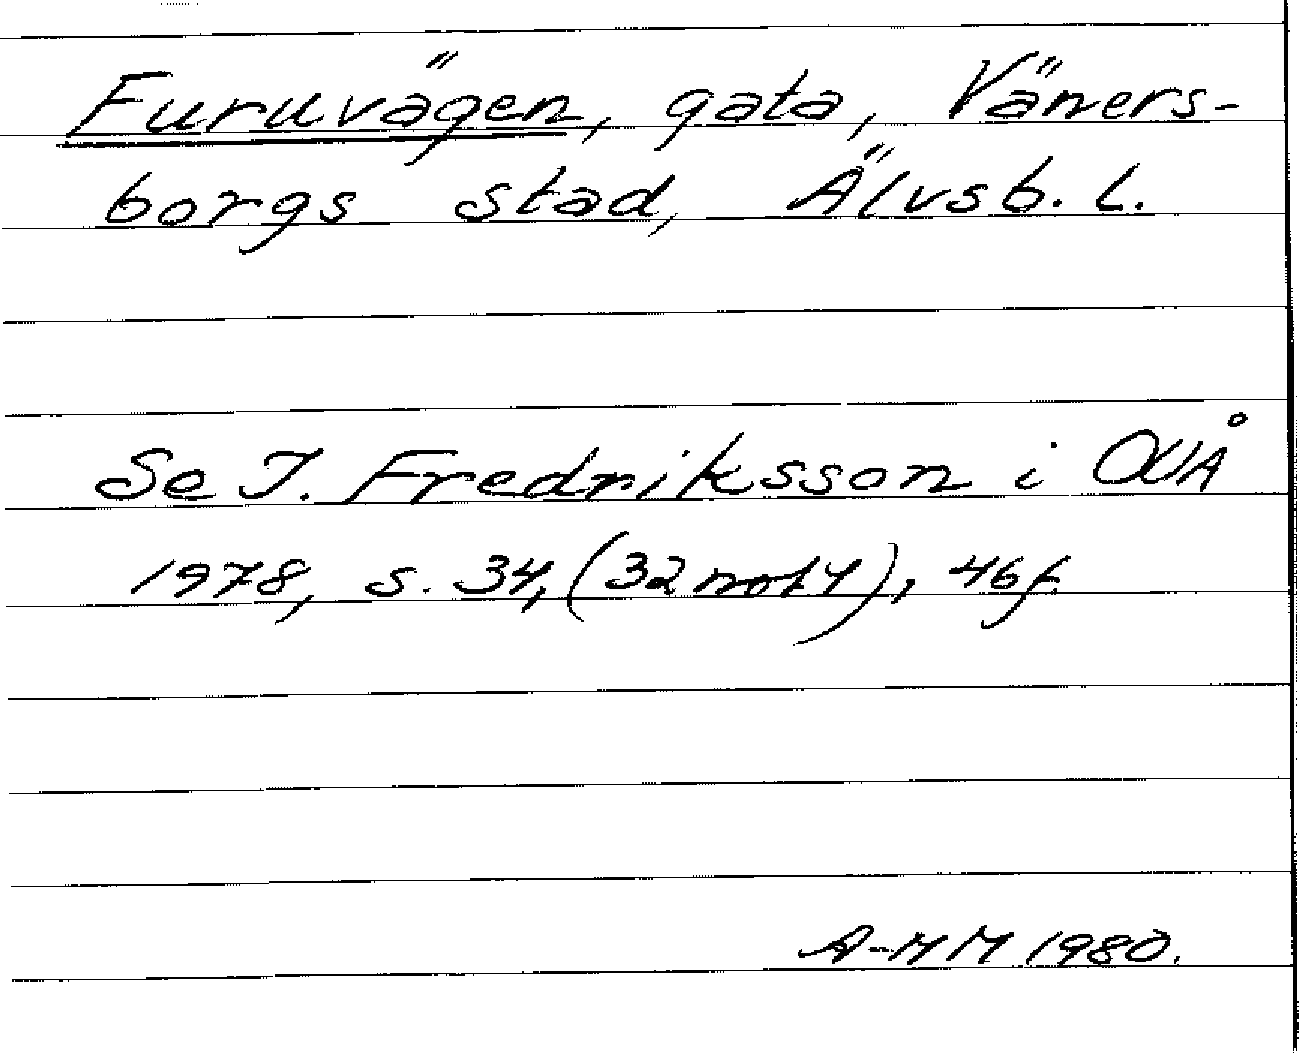 Furuvägen, gata, Väners-
borgs stad, Älvsb. L.
Se I. Fredriksson i OUÅ
1978, s. 34, (32 not 4), 46 f.
A-MM 1980.